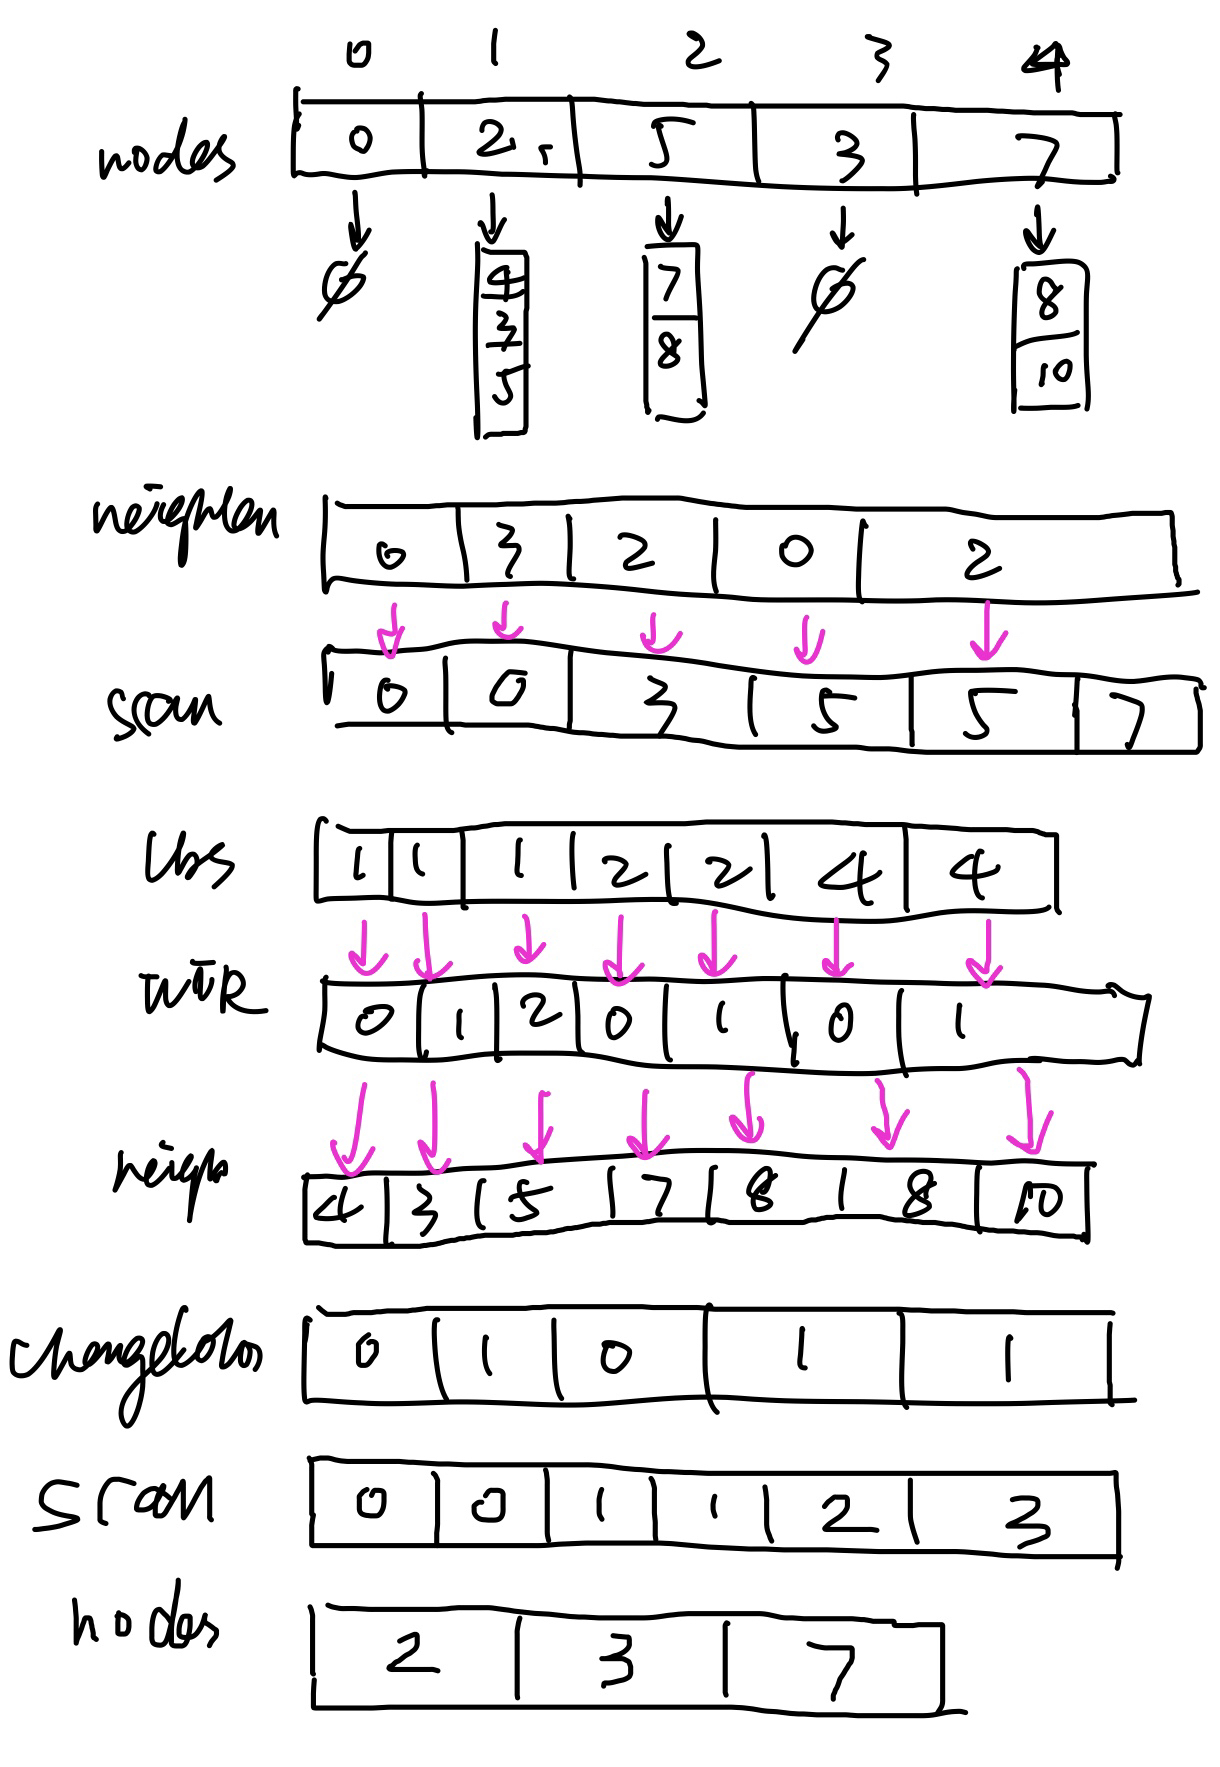 0 1 2 3 4
nodes 0 2 5 3 7
∅ 4 3 5 7 8 ∅ 8 10
neighlen 0 3 2 0 2
scan 0 0 3 5 5 7
lbs 1 1 1 2 2 4 4
TWiR 0 1 2 0 1 0 1
neighs 4 3 5 7 8 8 10
changeColor 0 1 0 1 1
scan 0 0 1 1 2 3
nodes 2 3 7